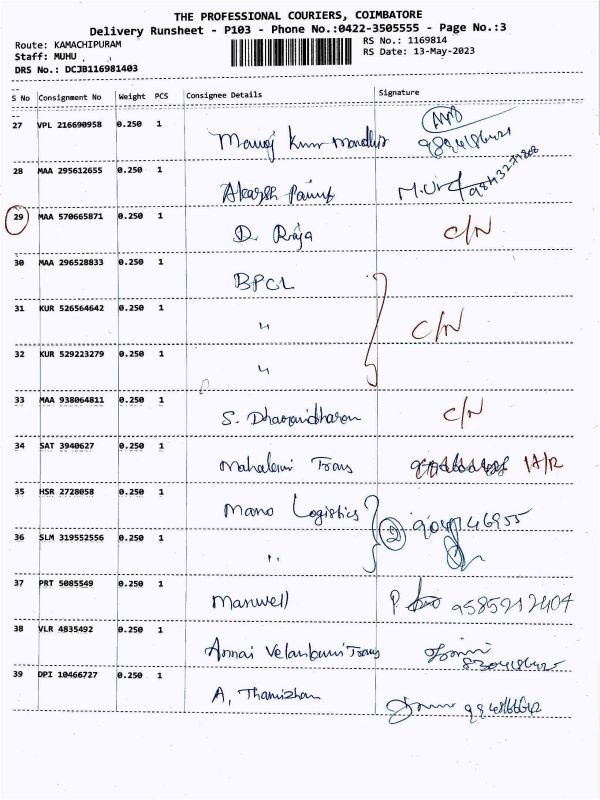 THE PROFESSIONAL COURIERS, COIMBATORE
Delivery Runsheet - P103 - Phone No.:0422-3505555 - Page No.:3
Route: KAMACHIPURAM RS No.: 1169814
Staff: MUHU , RS Date: 13-May-2023
DRS No.: DCJB116981403
S No Consignment No Weight PCS Consignee Details Signature
27 VPL 216690958 0.250 1
28 MAA 295612655 0.250 1 Akarsh
29 MAA 570665871 0.250 1 D. Raja C/N
30 MAA 296528833 0.250 1 BPCL
31 KUR 526564642 0.250 1 " C/N
32 KUR 529223279 0.250 1 "
33 MAA 938064811 0.250 1 S. Dharanidharan C/N
34 SAT 3940627 0.250 1 Trans
35 HSR 2728058 0.250 1 Mano Logistics
36 SLM 319552556 0.250 1 "
37 PRT 5085549 0.250 1 Manwell
38 VLR 4835492 0.250 1 Annai Trans
39 DPI 10466727 0.250 1 A, Thamizhan